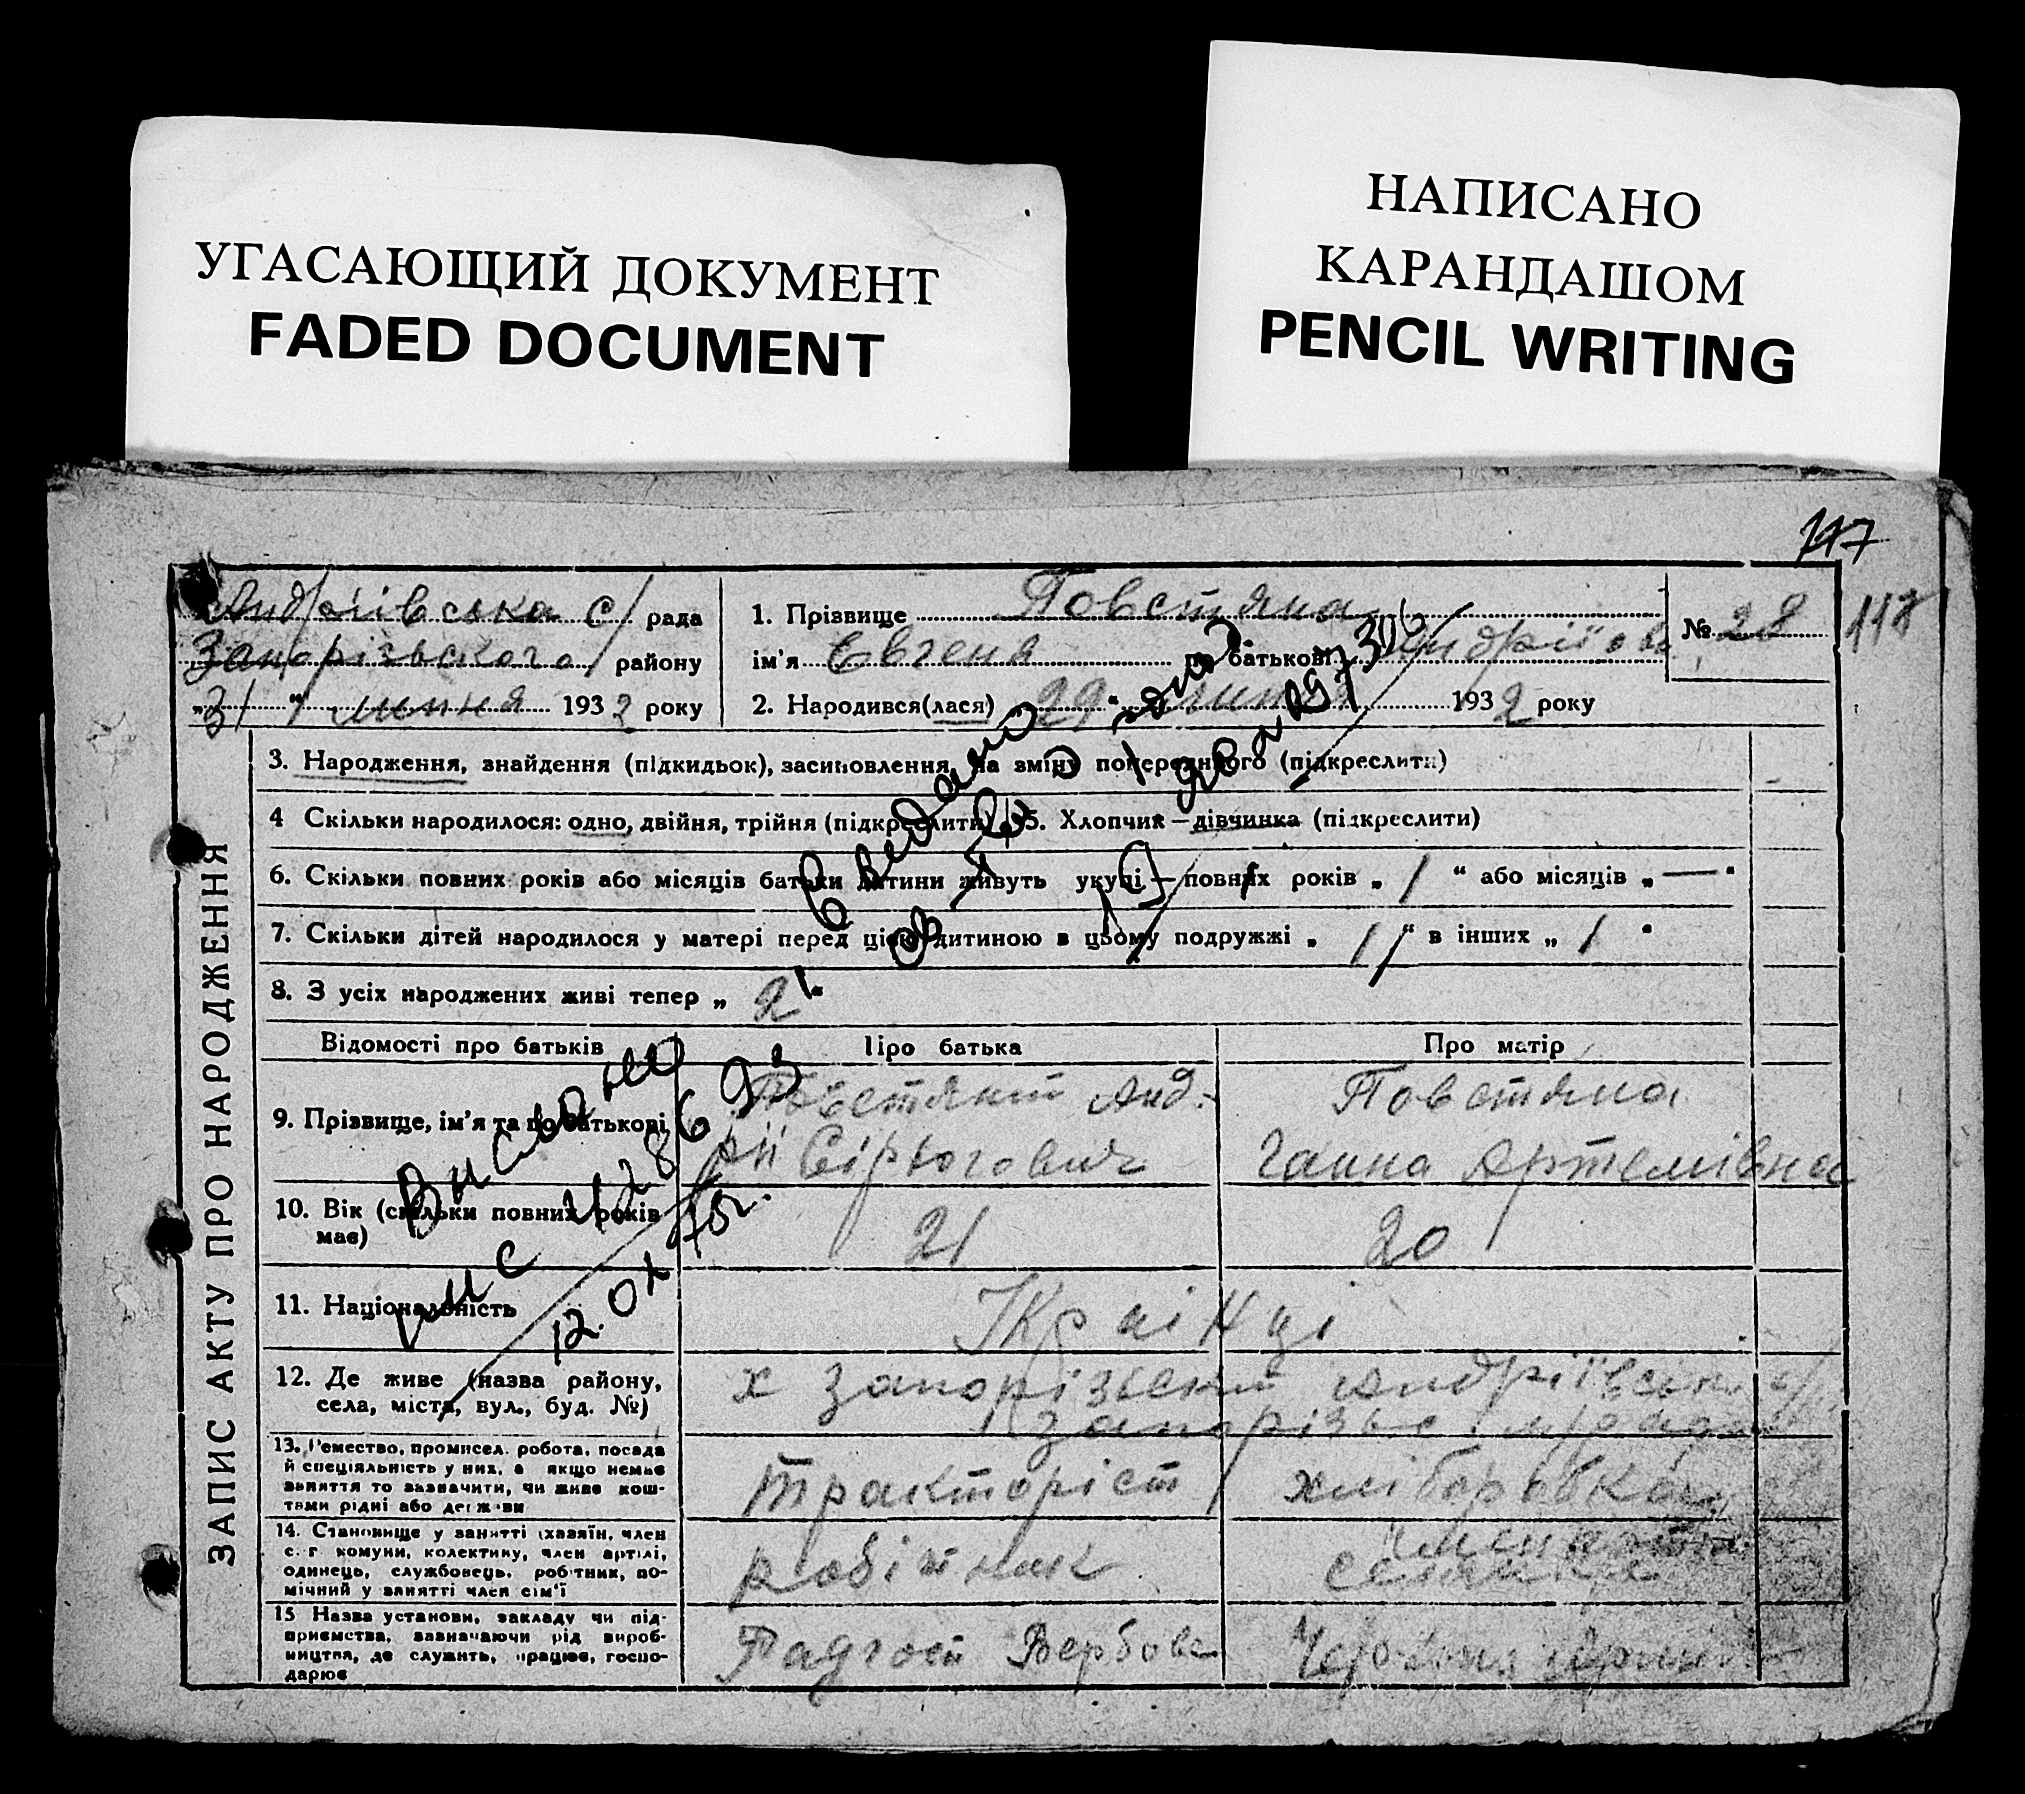 УГАСАЮЩИЙ ДОКУМЕНТ
FADED DOCUMENT
НАПИСАНО
КАРАНДАШОМ
PENCIL WRITING
117
118
Андріівська с/рада
Запорізького району
„31“ липня 1932 року
1. Прізвище Повстяна
ім'я Євгенія по батькові Андріівна
№ 28
2. Народився(лася) „29“ липня 1932 року
ЗАПИС АКТУ ПРО НАРОДЖЕННЯ
3. Народження, знайдення (підкидьок), засиновлення, на зміну попереднього (підкреслити)
4 Скільки народилося: одно, двійня, трійня (підкреслити) 5. Хлопчик – дівчинка (підкреслити)
6. Скільки повних років або місяців батьки дитини живуть укупі – повних років „ 1 “ або місяців „ — “
7. Скільки дітей народилося у матері перед цією дитиною в цьому подружжі „ 1 “ в інших „ 1 “
8. З усіх народжених живі тепер „ 2 “
Відомості про батьків Про батька Про матір
9. Прізвище, ім'я та по батькові
Повстяний Анд-
рій Сірьогович
Повстяна
Ганна Артемівна
10. Вік (скільки повних років
має)
21
20
11. Національність
Украінці
12. Де живе (назва району,
села, міста, вул., буд. №)
х Запорізький Андріівськ с/
13. Ремество, промисел, робота, посада
й спеціяльність у них, а якщо немає
заняття то зазначити, чи живе кош-
тами рідні або держави
тракторіст
хліборобка
14. Становище у занятті (хазяїн, член
с.-г комуни, колективу, член артілі,
одинець, службовець, робітник, по-
мічний у занятті член сім'ї
робітник
15 Назва установи, закладу чи під-
приємства, зазначаючи рід вироб-
ництва, де служить, працює, госпо-
дарює
Радгосп Вербове
12.